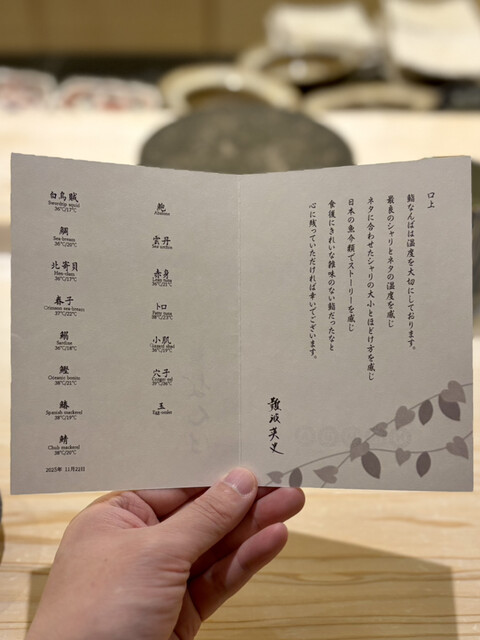 口上
鮨なんばは温度を大切にしております。
最良のシャリとネタの温度を感じ
ネタに合わせたシャリの大小とほどけ方を感じ
日本の魚介類でストーリーを感じ
食後にきれいな雑味のない鮨だったなと
心に残っていただければ幸いでございます。
難波英史
白烏賊
Swordtip squid
36℃/17℃
鯛
Sea bream
36℃/20℃
北寄貝
Hen clam
36℃/17℃
春子
Crimson sea bream
37℃/22℃
鰯
Sardine
36℃/18℃
鰹
Oceanic bonito
38℃/21℃
鰆
Spanish mackerel
38℃/19℃
鯖
Chub mackerel
38℃/20℃
2025年 11月22日
鮑
Abalone
雲丹
Sea urchin
赤身
Lean tuna
38℃/21℃
トロ
Fatty tuna
38℃/23℃
小肌
Gizzard shad
36℃/19℃
穴子
Conger eel
玉
Egg omlet